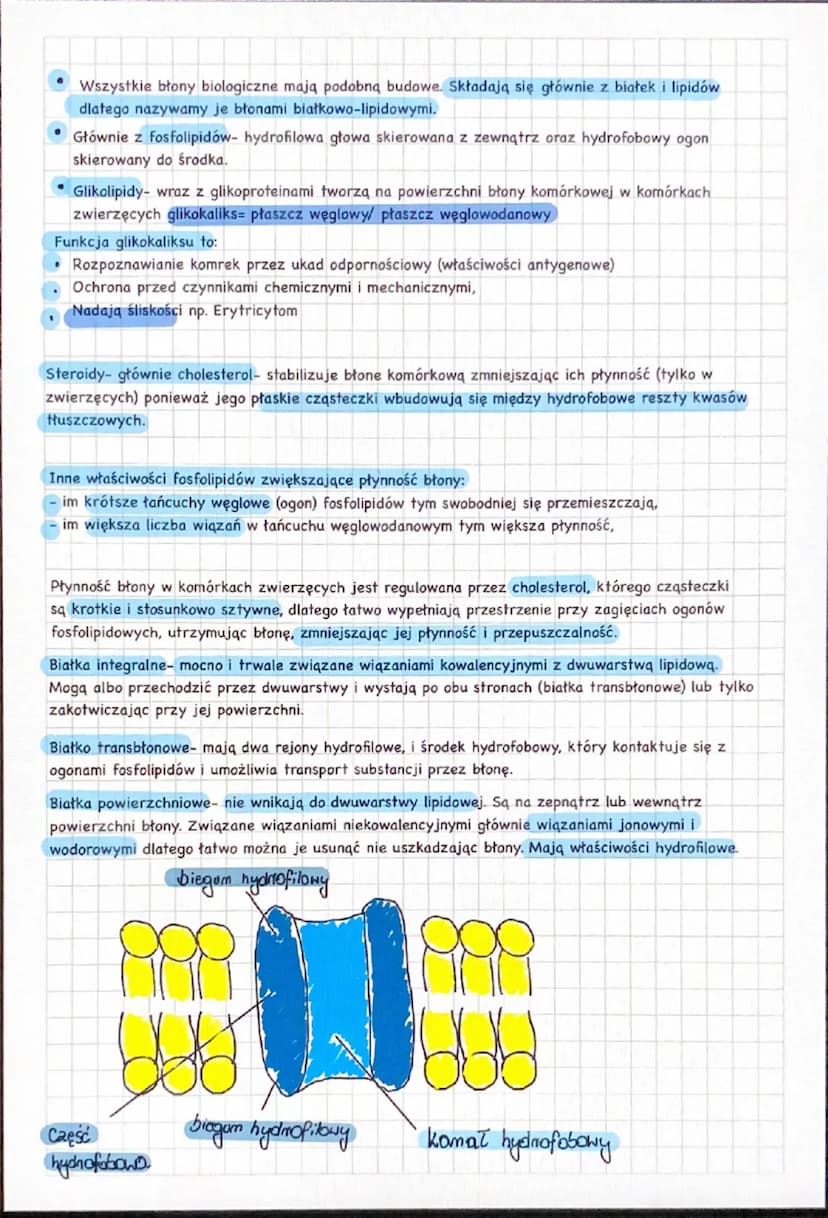 Wszystkie błony biologiczne mają podobną budowe. Składają się głównie z białek i lipidów
dlatego nazywamy je błonami białkowo-lipidowymi.
Głównie z fosfolipidów- hydrofilowa głowa skierowana z zewnątrz oraz hydrofobowy ogon
skierowany do środka.
Glikolipidy- wraz z glikoproteinami tworzą na powierzchni błony komórkowej w komórkach
zwierzęcych glikokaliks= płaszcz węglowy/ płaszcz węglowodanowy
Funkcja glikokaliksu to:
Rozpoznawianie komrek przez ukad odpornościowy (właściwości antygenowe)
Ochrona przed czynnikami chemicznymi i mechanicznymi,
Nadają śliskości np. Erytricytom
Steroidy- głównie cholesterol- stabilizuje błone komórkową zmniejszając ich płynność (tylko w
zwierzęcych) ponieważ jego płaskie cząsteczki wbudowują się między hydrofobowe reszty kwasów
tłuszczowych.
Inne właściwości fosfolipidów zwiększające płynność błony:
- im krótsze łańcuchy węglowe (ogon) fosfolipidów tym swobodniej się przemieszczają,
- im większa liczba wiązań w łańcuchu węglowodanowym tym większa płynność,
Płynność błony w komórkach zwierzęcych jest regulowana przez cholesterol, którego cząsteczki
są krotkie i stosunkowo sztywne, dlatego łatwo wypełniają przestrzenie przy zagięciach ogonów
fosfolipidowych, utrzymując błonę, zmniejszając jej płynność i przepuszczalność.
Białka integralne- mocno i trwale związane wiązaniami kowalencyjnymi z dwuwarstwą lipidową.
Mogą albo przechodzić przez dwuwarstwy i wystają po obu stronach (białka transbłonowe) lub tylko
zakotwiczając przy jej powierzchni.
Białko transbłonowe- mają dwa rejony hydrofilowe, i środek hydrofobowy, który kontaktuje się z
ogonami fosfolipidów i umożliwia transport substancji przez błonę.
Białka powierzchniowe- nie wnikają do dwuwarstwy lipidowej. Są na zepnątrz lub wewnątrz
powierzchni błony. Związane wiązaniami niekowalencyjnymi głównie wiązaniami jonowymi i
wodorowymi dlatego łatwo można je usunąć nie uszkadzając błony. Mają właściwości hydrofilowe.
biegum hydrofilowy
Część
hydrofobowa
biegum hydrofilowy
kanał hydrofobowy